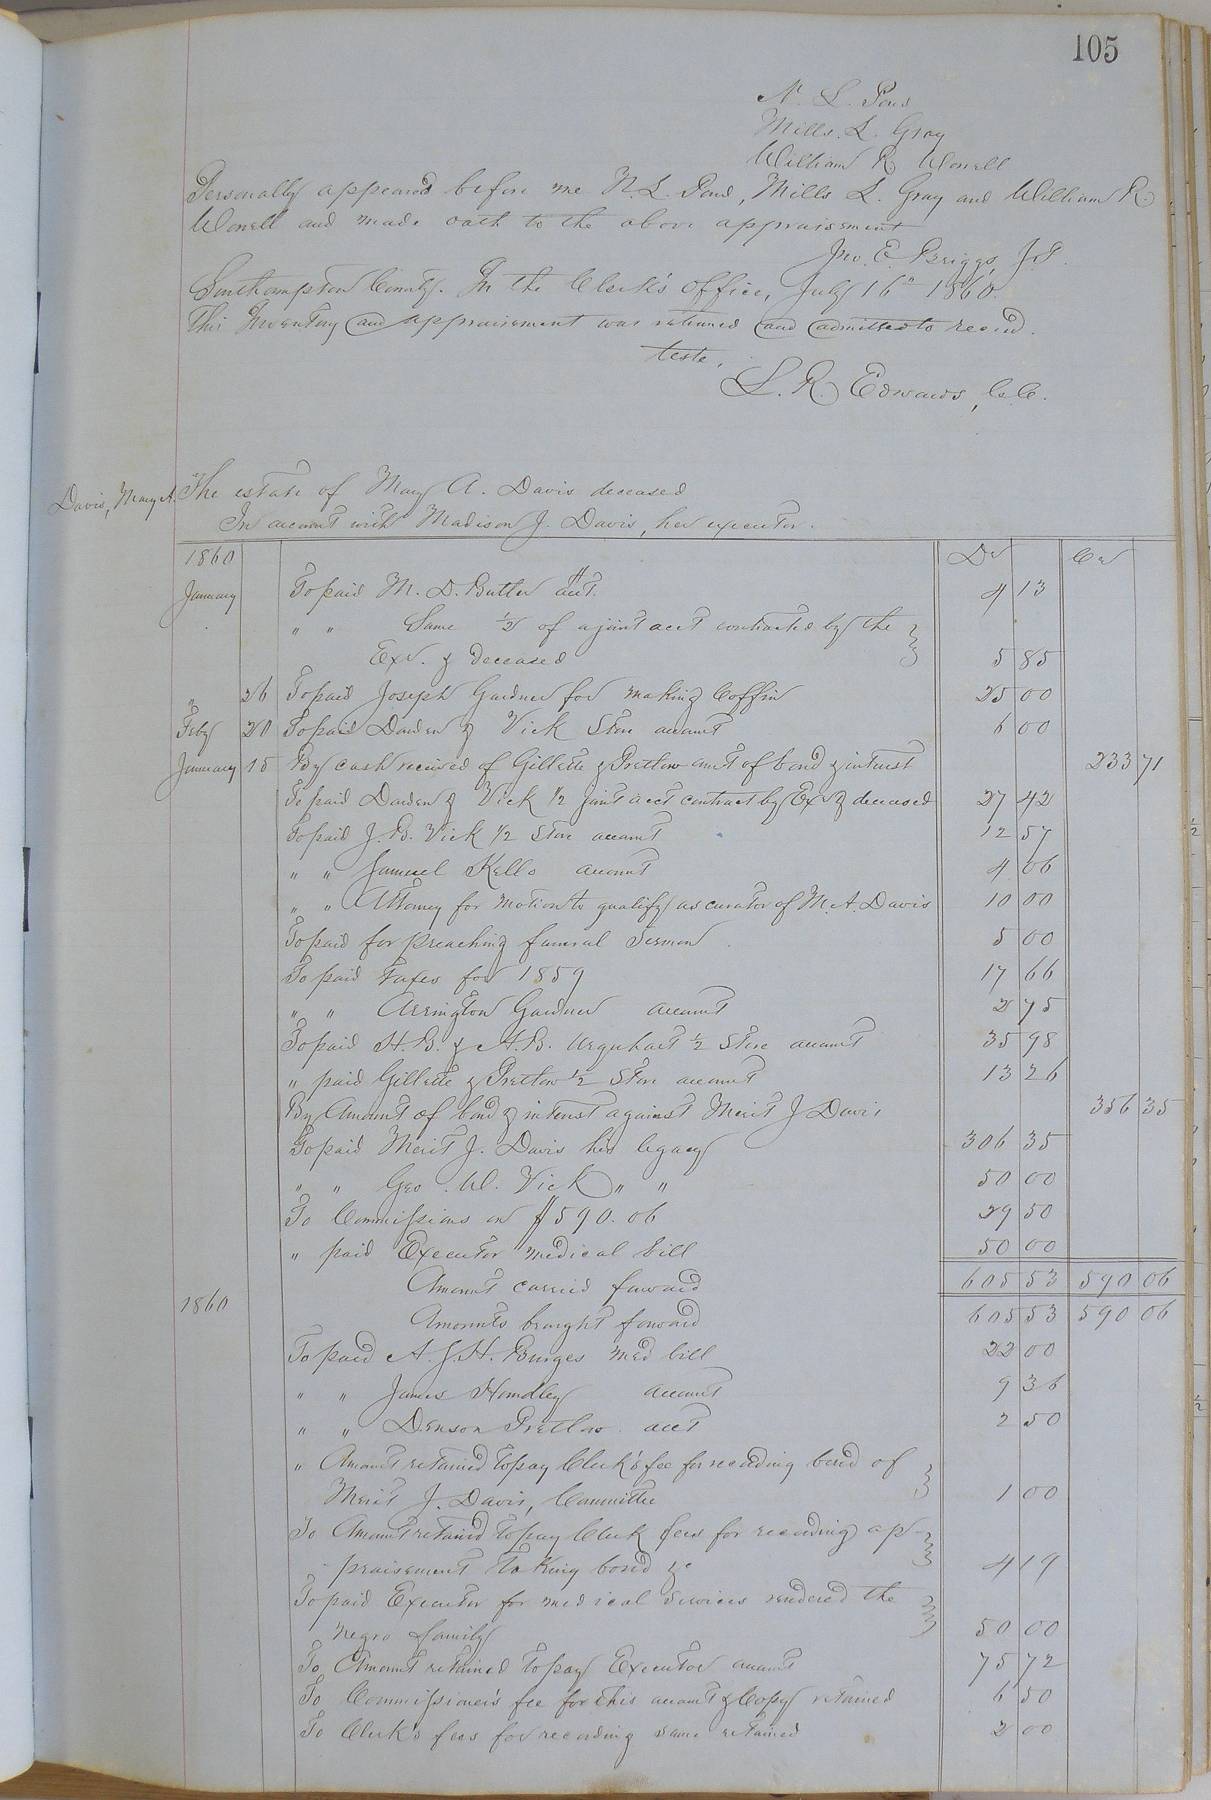 105
N. L. Pond
Mills. L. Gray
William R Worrell
Personally appeared before me N. L. Pond, Mills L. Gray and William R.
Worrell and made oath to the above appraisement
Jno. E. Briggs, J.P.
Southampton County. In the Clerk's office, July 16th 1860.
This Inventory and appraisement was returned and admitted to record.
teste,
L. R. Edwards, C.C.
Davis, Mary A.
The estate of Mary A. Davis deceased
In account with Madison J. Davis, her executor.
1860 Dr Cr
January To paid M. D. Butler acct. $ 4 13
" " Same 1/2 of a joint acct contracted by the
Exr. & deceased 5 85
" 26 To paid Joseph Gardner for making Coffin 25 00
Feby 20 To paid Darden & Vick Store account 6 00
January 15 By cash received of Gillette & Pretlow amt of bond & interest 233 71
To paid Darden & Vick 1/2 joint acct contract by Exr & deceased 27 42
To paid J. B. Vick 1/2 Store account 12 57
" " Samuel Kello account 4 06
" " Attorney for motion to qualify as curator of M. A. Davis 10 00
To paid for preaching funeral Sermon 5 00
To paid taxes for 1859 17 66
" " Arrington Gardner account 2 75
To paid H. B. & A. B. Urquhart 1/2 Store account 35 98
" paid Gillette & Pretlow 1/2 Store account 13 26
By Amount of bond & interest against Merit J Davis 356 35
To paid Merit J. Davis his legacy 306 35
" " Geo. W. Vick " " 50 00
To Commissions on $590.06 29 50
" paid Executor medical bill 50 00
Amount carried forward 605 53 590 06
1860 Amounts brought forward 605 53 590 06
To paid A. J. H. Burges med bill 22 00
" " James Handley account 9 36
" " Denson Pretlow acct 2 50
" Amount retained to pay Clerk's fee for recording bond of
Merit J. Davis, Committee 1 00
To Amount retained to pay Clerk fees for recording ap-
-praisement taking bond &c 4 19
To paid Executor for medical Services rendered the
negro family 50 00
To Amount retained to pay Executor amount 75 72
To Commissioner's fee for this account & Copy retained 6 50
To Clerk's fees for recording same retained 2 00